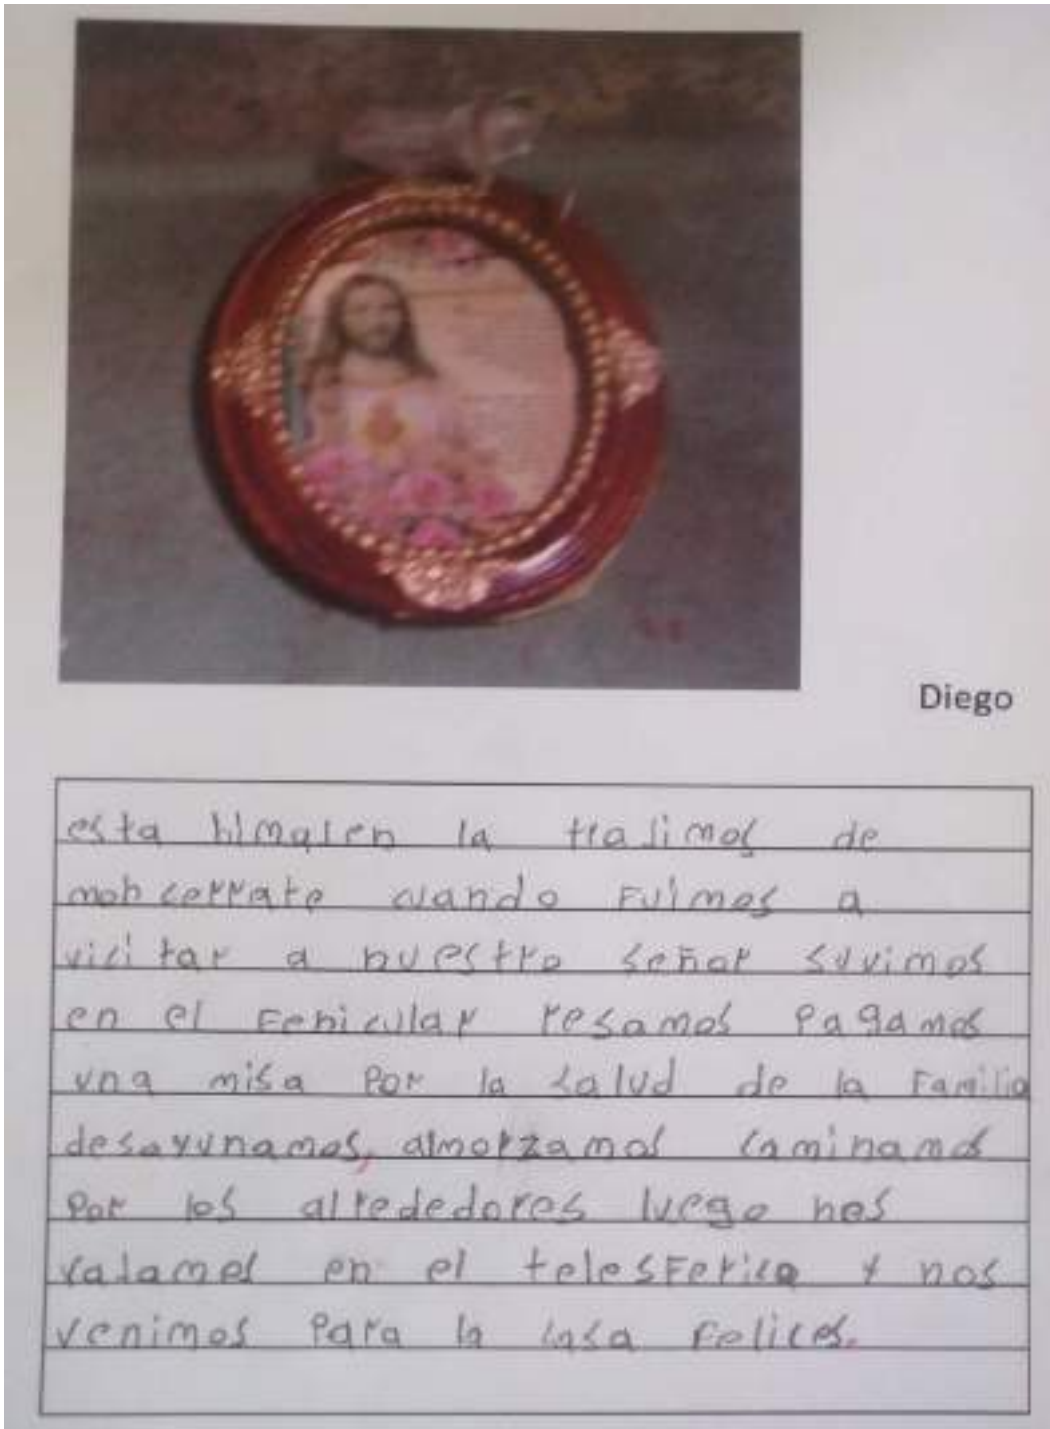 Diego
esta himajen la trajimos de
moncerrate cuando fuimos a
vicitar a nuestro señor suvimos
en el fenicular resamos pagamos
una misa por la salud de la familia
desayunamos, almorzamos caminamos
por los alrededores luego nos
vajamos en el telesferico y nos
venimos para la casa felices.